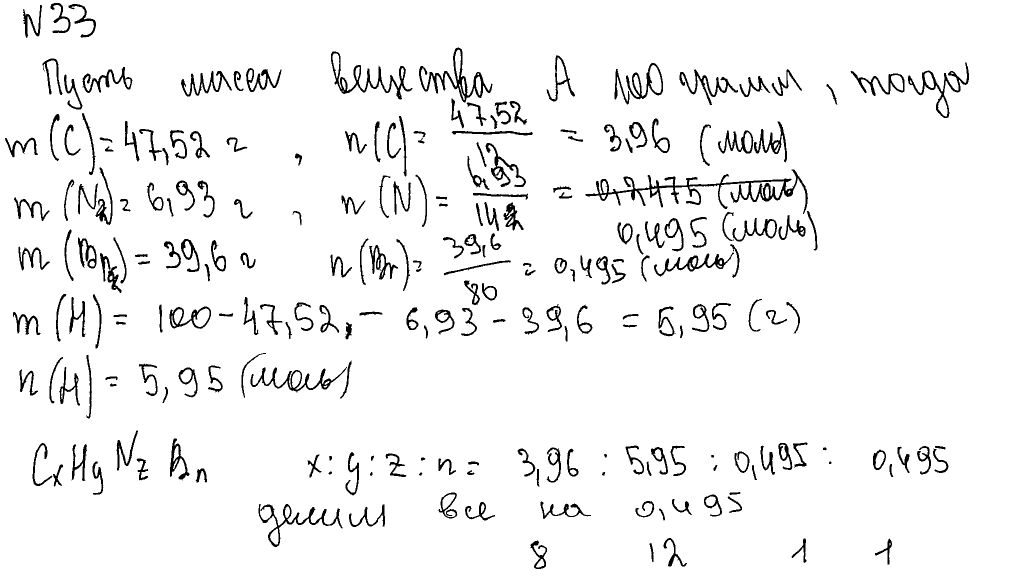 N33
Пусть масса вещества А 100 грамм, тогда
m(C)=47,52 г, n(C)= 47,52/12 = 3,96 (моль)
m(N2)=6,93 г, n(N)= 6,93/14 = 0,2475 (моль)
0,495 (моль)
m(Br2)=39,6 г n(Br)= 39,6/80 = 0,495 (моль)
m(H) = 100-47,52,- 6,93-39,6 = 5,95 (г)
n(H)= 5,95 (моль)
CxHyNzBn x:y:z:n= 3,96 : 5,95 : 0,495 : 0,495
делим все на 0,495
8 12 1 1